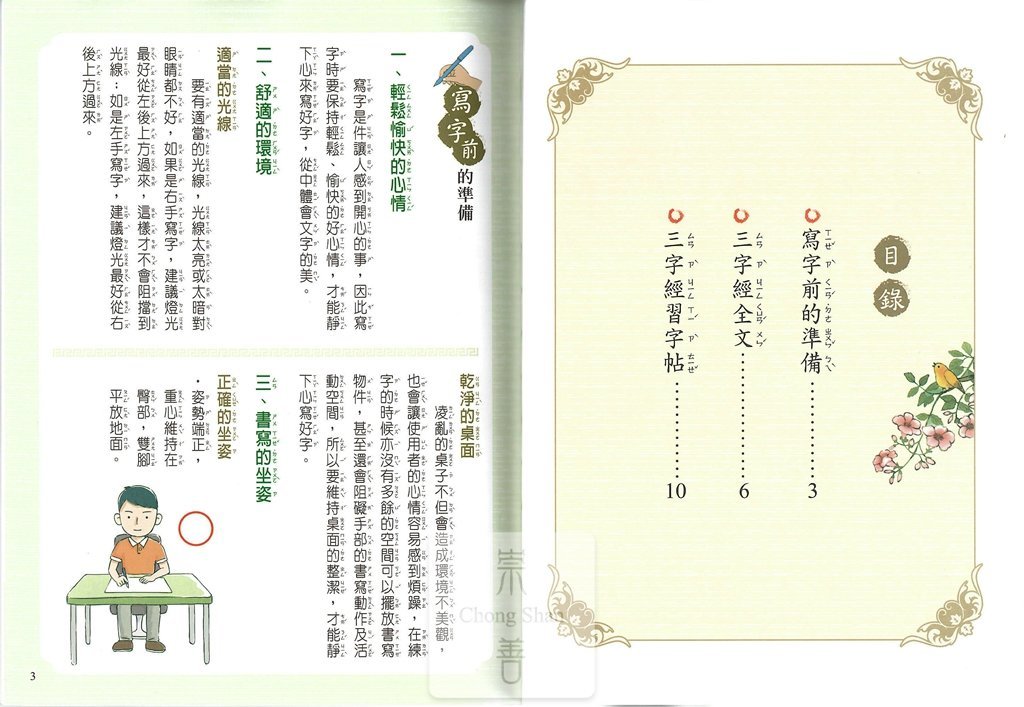 目錄
寫字前的準備………………3
三字經全文………………6
三字經習字帖………………10
寫字前的準備
一、輕鬆愉快的心情
寫字是件讓人感到開心的事，因此寫
字時要保持輕鬆、愉快的好心情，才能靜
下心來寫好字，從中體會文字的美。
二、舒適的環境
適當的光線
要有適當的光線，光線太亮或太暗對
眼睛都不好，如果是右手寫字，建議燈光
最好從左後上方過來，這樣才不會阻擋到
光線；如是左手寫字，建議燈光最好從右
後上方過來。
乾淨的桌面
凌亂的桌子不但會造成環境不美觀，
也會讓使用者的心情容易感到煩躁，在練
字的時候亦沒有多餘的空間可以擺放書寫
物件，甚至還會阻礙手部的書寫動作及活
動空間，所以要維持桌面的整潔，才能靜
下心寫好字。
三、書寫的坐姿
正確的坐姿
・姿勢端正，
重心維持在
臀部，雙腳
平放地面。
3
崇善
Chong Shan